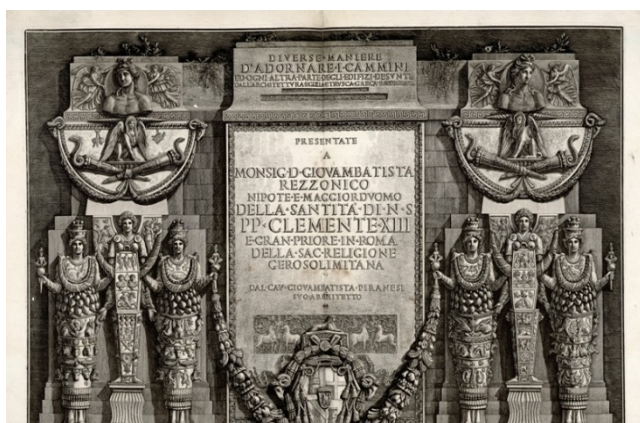 DIVERSE·MANIERE
D'ADORNARE·I·CAMMINI
ED·OGNI·ALTRA·PARTE·DEGLI·EDIFIZI·DESUNTE
DALL'ARCHITETTURA·EGIZIA·ETRUSCA·E·GRECA
PRESENTATE
A
MONSIG·D·GIOVAMBATISTA
REZZONICO
NIPOTE·E·MAGGIORDVOMO
DELLA·SANTITÀ·DI·N·S
PP·CLEMENTE·XIII
E·GRAN·PRIORE·IN·ROMA
DELLA·SAC·RELIGIONE
GEROSOLIMITANA
DAL·CAV·GIOVAMBATISTA·PIRANESI
SVO·ARCHITETTO